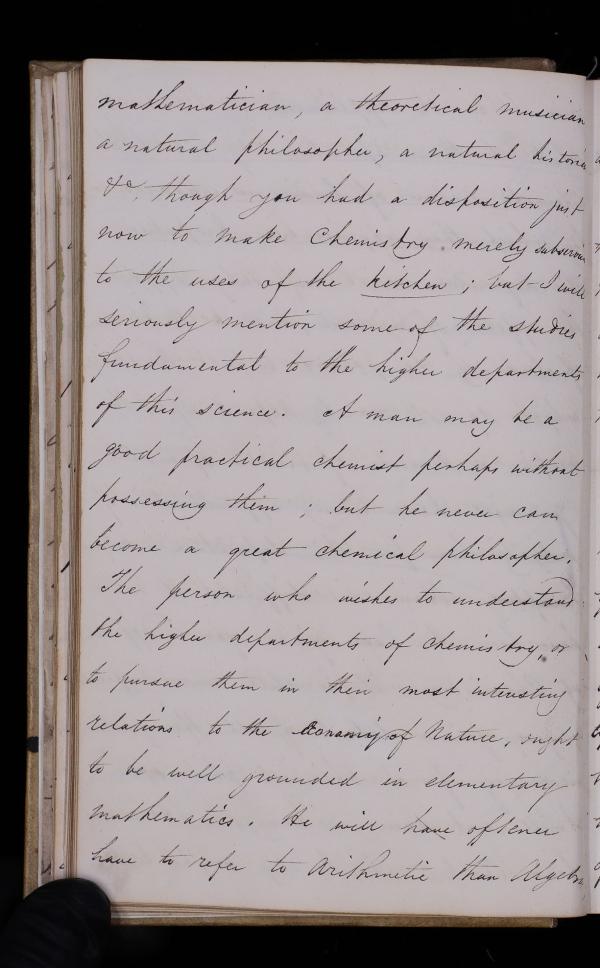 mathematician, a theoretical musician
a natural philosopher, a natural historian
&c. though you had a disposition just
now to make Chemistry merely subservient
to the uses of the kitchen ; but I will
seriously mention some of the studies
fundamental to the higher departments
of this science. A man may be a
good practical chemist perhaps without
possessing them ; but he never can
become a great chemical philosopher.
The person who wishes to understand
the higher departments of chemistry, or
to pursue them in their most interesting
relations to the Economy of Nature, ought
to be well grounded in elementary
mathematics. He will have oftener
have to refer to Arithmetic than Algebra,